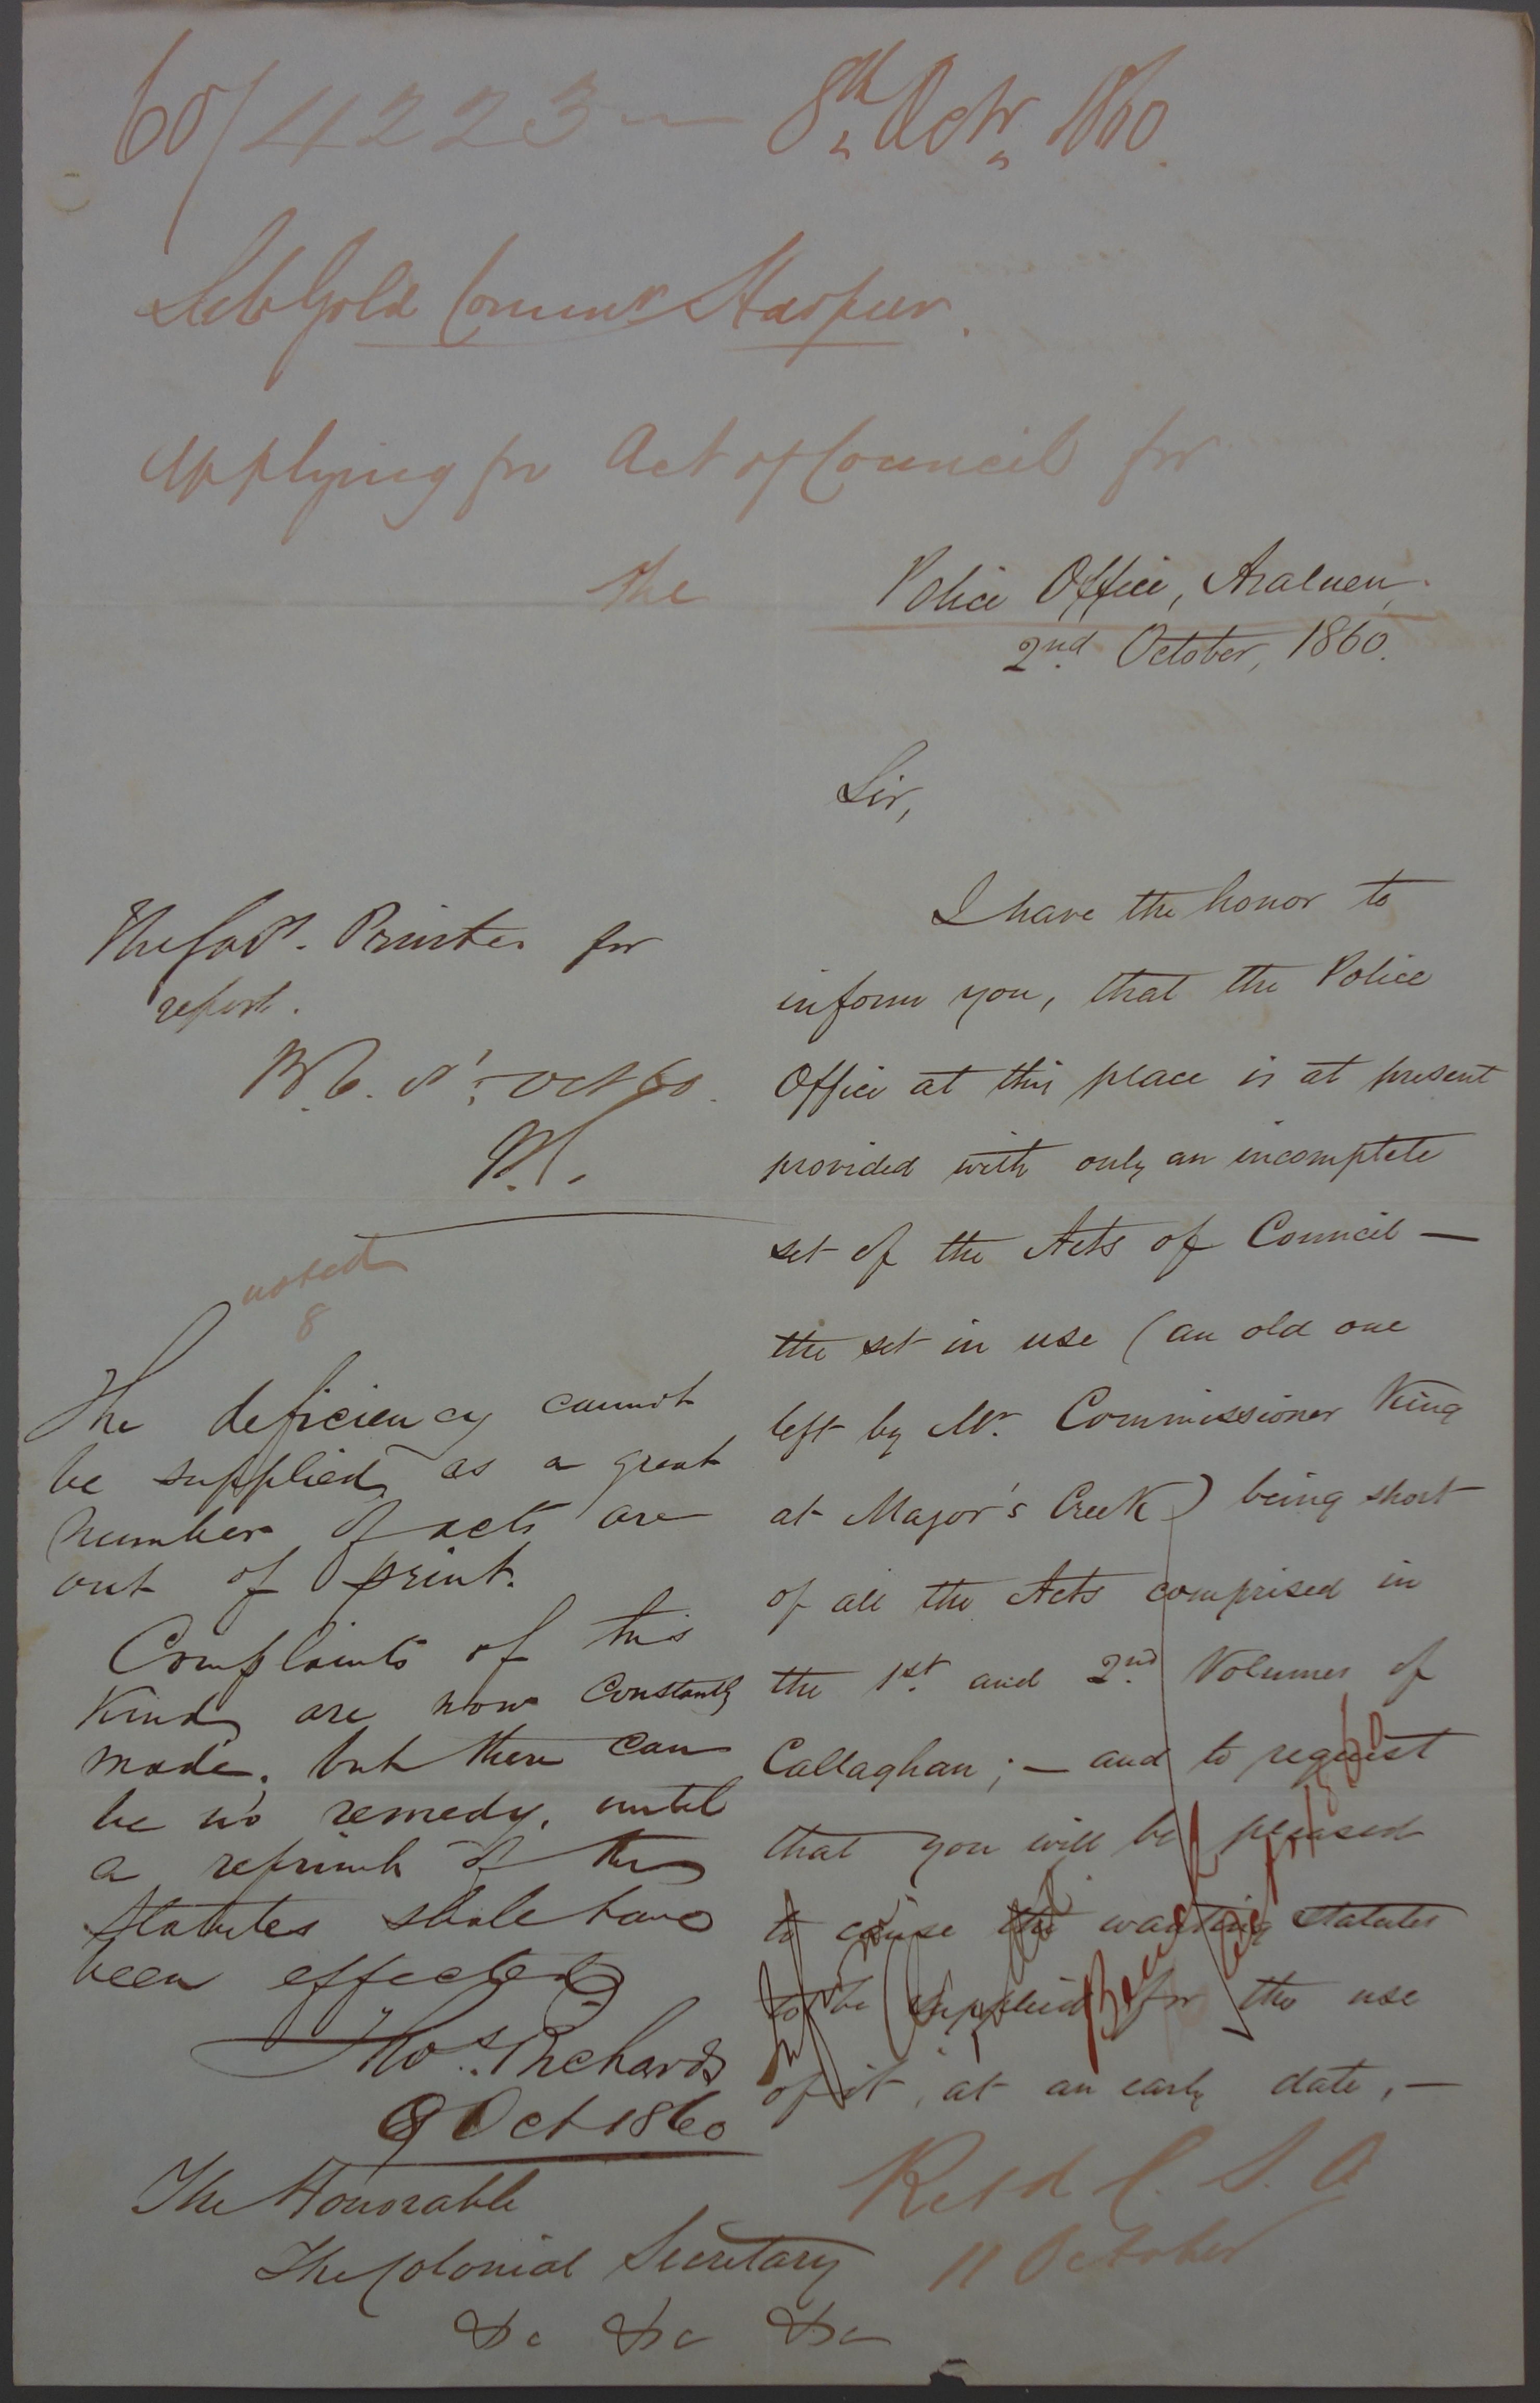 60/4223 — 8th Octr. 1860.
Sub Gold Commr Harpur.
Applying for Act of Council for
the
Police Office, Araluen,
2nd October, 1860.
Sir,
I have the honor to
inform you, that the Police
Office at this place is at present
provided with only an incomplete
set of the Acts of Council —
the set in use (an old one
left by Mr. Commissioner King
at Major's Creek) being short
of all the Acts comprised in
the 1st and 2nd Volumes of
Callaghan; — and to request
that you will be pleased
to cause the wanting statutes
to be supplied for the use
of it, at an early date, —
The Govt. Printer for
report.
B.C. Oct 60.
noted
8
The deficiency cannot
be supplied, as a great
number of acts are
out of print.
Complaints of this
kind are now constantly
made, but there can
be no remedy, until
a reprint of the
Statutes shall have
been effected
Thos. Richards
9 Oct 1860
The Honorable
The Colonial Secretary
&c &c &c
Retd C. S. O
11 October